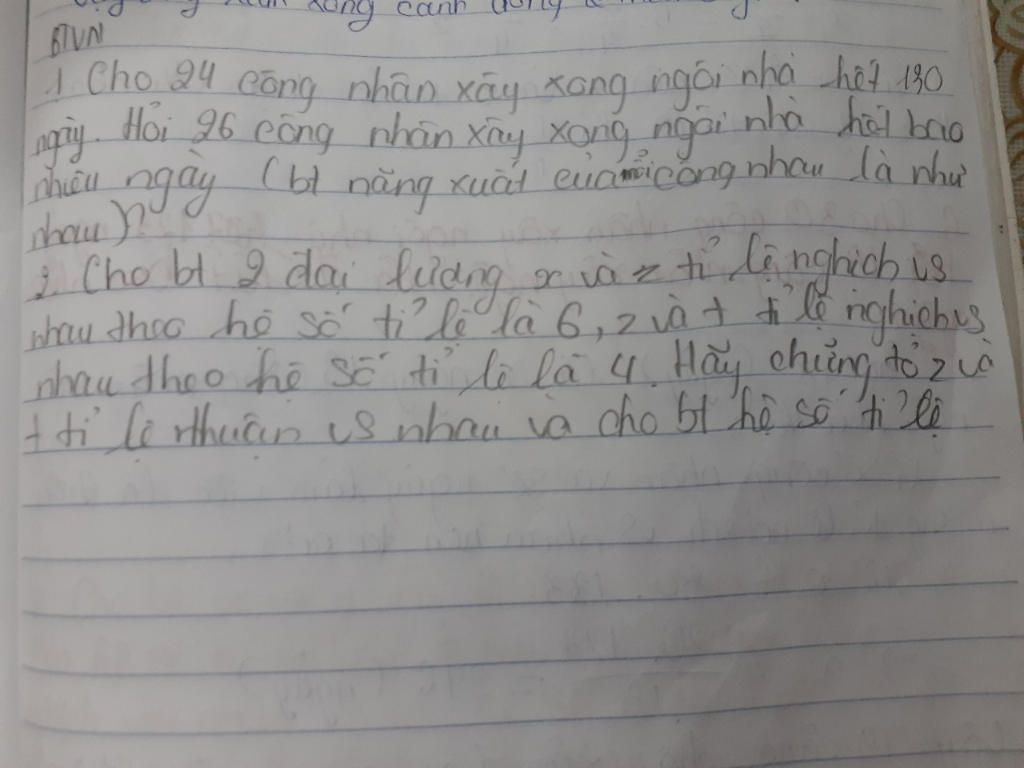 xong cánh đồng
BTVN
1. Cho 24 công nhân xây xong ngôi nhà hết 130
ngày. Hỏi 26 công nhân xây xong ngôi nhà hết bao
nhiêu ngày (bt năng xuất của mỗi công nhau là như
nhau)?
2. Cho bt 2 đại lượng x và z tỉ lệ nghịch vs
nhau theo hệ số tỉ lệ là 6, z và t tỉ lệ nghịch vs
nhau theo hệ số tỉ lệ là 4. Hãy chứng tỏ z và
t tỉ lệ thuận vs nhau và cho bt hệ số tỉ lệ